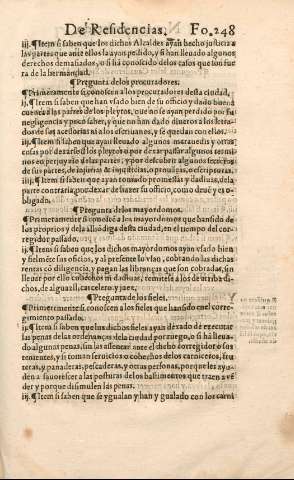 De Residencias. Fo.248
iij. ¶ Item si saben que los dichos Alcaldes ayan hecho justicia a
las partes que ante ellos la ayan pedido, y si han lleuado algunos
derechos demasiados, o si hā conocido delos casos que son fue
ra de la hermandad.
¶ Pregunta de los procuradores.
¶ Primeramente si conoscen a los procuradores desta ciudad,
ij. ¶ Item si saben que han vsado bien de su officio y dado buena
cuenta a las partes de los pleytos, que no se ayan perdido por su
negligencia y poco saber, y que no han dado dineros a los letra
dos de sus acessorias ni a los escriuanos, y se quedan con ellos.
iij. ¶ Item si saben que ayan lleuado algunos marauedis y otras
cosas por dexarse d los pleytos o por dexar passar algunos termi-
nos en perjuyzio delas partes, y por descubrir algunos secretos
de sus partes, de injurias de
iiij. ¶ Item si saben que ayan tomado promessas y dadiuas, dela
parte contraria, por dexar de hazer su officio, como deuē y es o-
bligado.
¶ Pregunta delos mayordomos.
¶ Primeramente si conosce a los mayordomos que han sido de
los proprios y dela alhōdiga desta ciudad, en el tiempo del cor-
regidor passado.
ij. ¶ Item si saben que los dichos mayordomos ayan vsado bien
y fielmēte sus officios, y al presente lo vsan, cobrando las dichas
rentas cō diligencia, y pagan las libranças que son cobradas, sin
lleuar por ello cohechos ni dadiuas, remitese a los de arriba di-
chos, de alguazil, carcelero, y juez,
¶ Pregunta de los fieles.
¶ Primeramente si conoscen a los fieles que han sido enel corre-
gimiento passado.
ij. ¶ Item si saben que los dichos fieles ayan dexado de executar
las penas de las ordenanças dela ciudad por ruego, o si hā lleua-
do algunas penas, sin las assentar ante el dicho corregidor, o sus
tenientes, y si tomaron seruicios o cohechos delos carniceros, fru
teras, y panaderas, pescaderas, y otras personas, porque les ayu-
den a fauorescer a las posturas de los bastimentos que traen a vē
der y porque dissimulen las penas.
iij. ¶ Item si saben que se ygualan y han ygualado con los carni